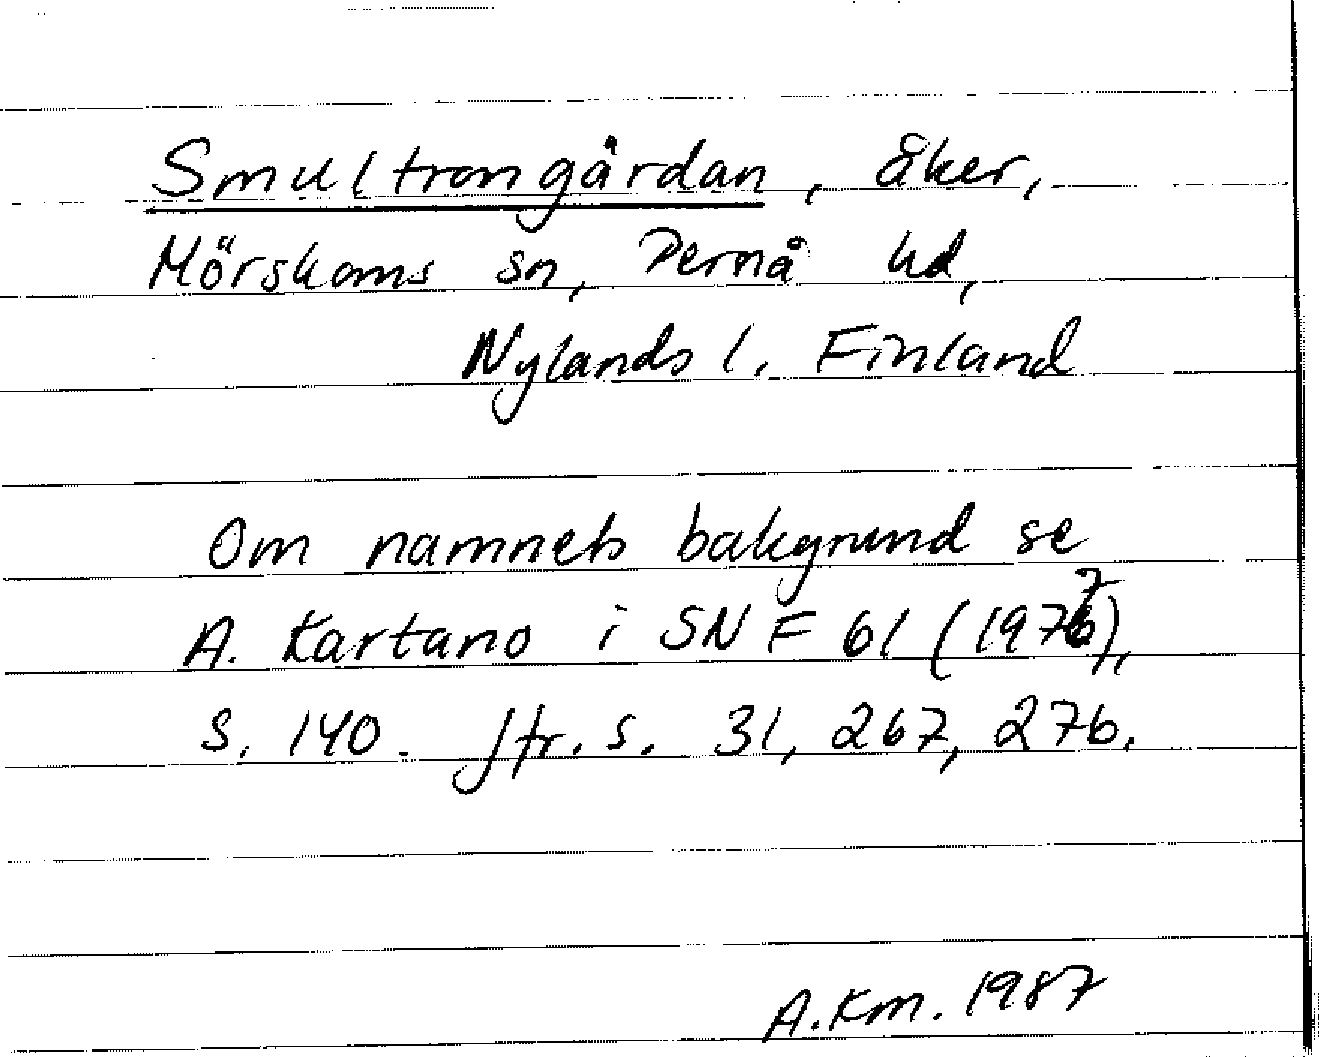 Smultrongårdan, åker,
Mörskoms sn, Pernå hd,
Nylands l. Finland
Om namnets bakgrund se
A. Kartano i SNF 61 (1977),
s. 140. Jfr. s. 31, 267, 276.
A.Km. 1987